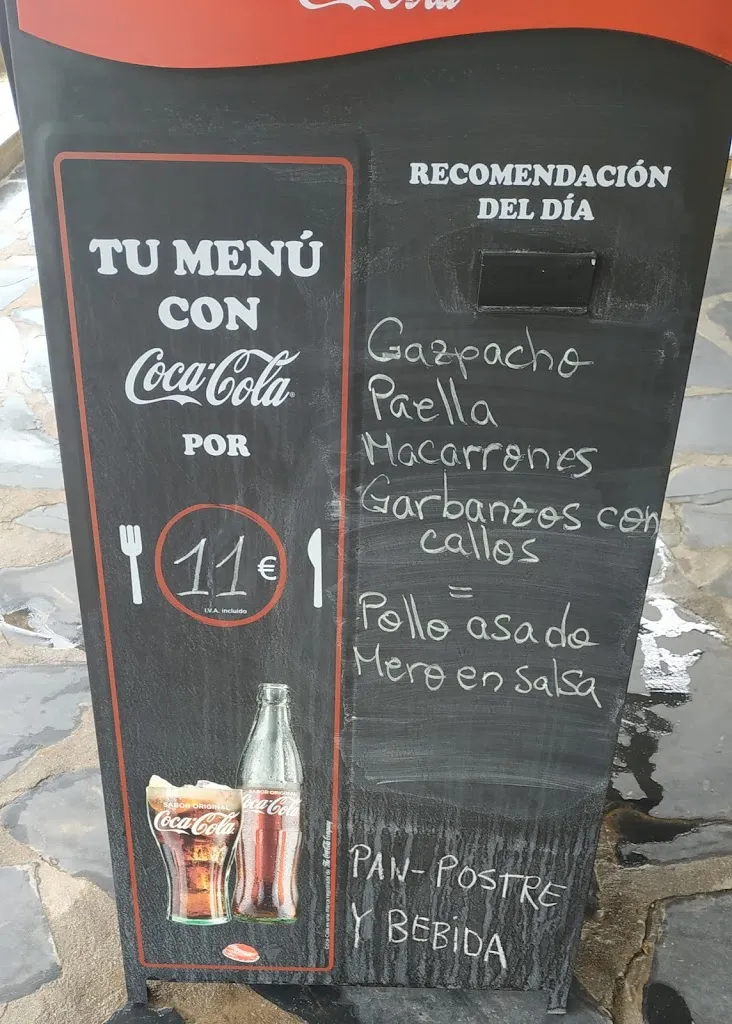 Coca-Cola
TU MENÚ
CON
Coca-Cola
POR
11 €
I.V.A. incluido
SABOR ORIGINAL
Coca-Cola
SABOR ORIGINAL
Coca-Cola
RECOMENDACIÓN
DEL DÍA
Gazpacho
Paella
Macarrones
Garbanzos con
callos
=
Pollo asado
Mero en salsa
PAN-POSTRE
Y BEBIDA